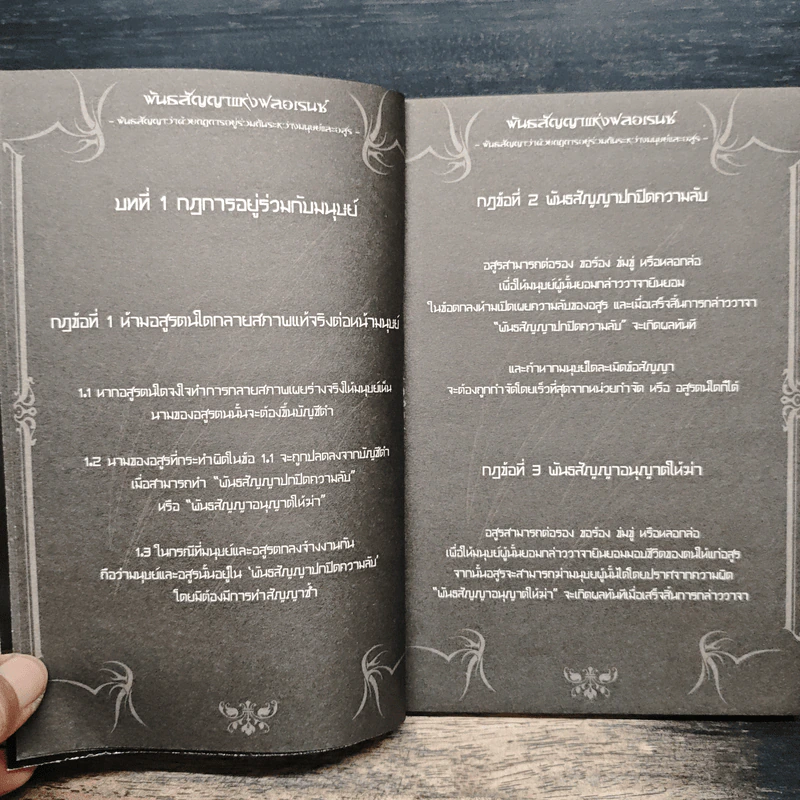 พันธสัญญาแห่งฟลอเรนซ์
- พันธสัญญาว่าด้วยกฎการอยู่ร่วมกันระหว่างมนุษย์และอสูร -
บทที่ 1 กฎการอยู่ร่วมกับมนุษย์
กฎข้อที่ 1 ห้ามอสูรตนใดกลายสภาพแท้จริงต่อหน้ามนุษย์
1.1 หากอสูรตนใดจงใจทำการกลายสภาพเผยร่างจริงให้มนุษย์เห็น
นามของอสูรตนนั้นจะต้องขึ้นบัญชีดำ
1.2 นามของอสูรที่กระทำผิดในข้อ 1.1 จะถูกปลดลงจากบัญชีดำ
เมื่อสามารถทำ "พันธสัญญาปกปิดความลับ"
หรือ "พันธสัญญาอนุญาตให้ฆ่า"
1.3 ในกรณีที่มนุษย์และอสูรตกลงจ้างงานกัน
ถือว่ามนุษย์และอสูรนั้นอยู่ใน 'พันธสัญญาปกปิดความลับ'
โดยมิต้องมีการทำสัญญาซ้ำ
พันธสัญญาแห่งฟลอเรนซ์
- พันธสัญญาว่าด้วยกฎการอยู่ร่วมกันระหว่างมนุษย์และอสูร -
กฎข้อที่ 2 พันธสัญญาปกปิดความลับ
อสูรสามารถต่อรอง ขอร้อง ข่มขู่ หรือหลอกล่อ
เพื่อให้มนุษย์ผู้นั้นยอมกล่าววาจายินยอม
ในข้อตกลงห้ามเปิดเผยความลับของอสูร และเมื่อเสร็จสิ้นการกล่าววาจา
"พันธสัญญาปกปิดความลับ" จะเกิดผลทันที
และถ้าหากมนุษย์ใดละเมิดข้อสัญญา
จะต้องถูกกำจัดโดยเร็วที่สุดจากหน่วยกำจัด หรือ อสูรตนใดก็ได้
กฎข้อที่ 3 พันธสัญญาอนุญาตให้ฆ่า
อสูรสามารถต่อรอง ขอร้อง ข่มขู่ หรือหลอกล่อ
เพื่อให้มนุษย์ผู้นั้นยอมกล่าววาจายินยอมมอบชีวิตของตนให้แก่อสูร
จากนั้นอสูรจะสามารถฆ่ามนุษย์ผู้นั้นได้โดยปราศจากความผิด
"พันธสัญญาอนุญาตให้ฆ่า" จะเกิดผลทันทีเมื่อเสร็จสิ้นการกล่าววาจา